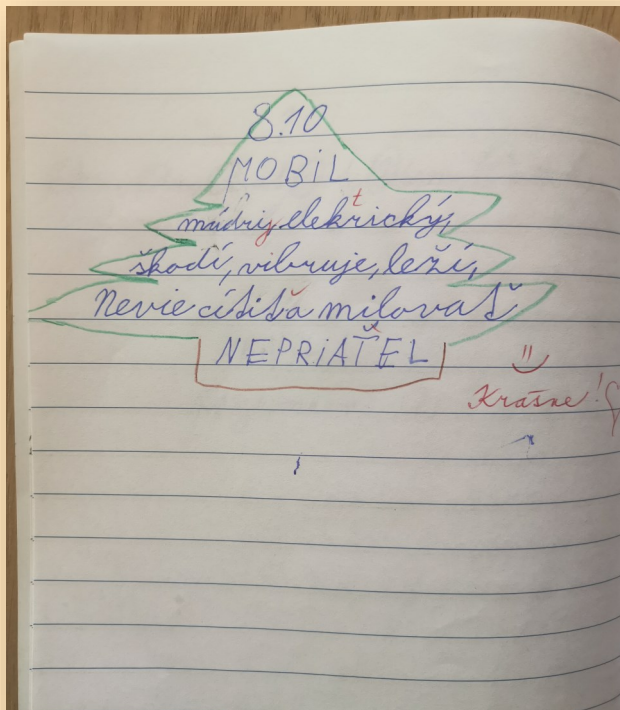 8.10
MOBiL
múdry, elektrický,
škodí, vibruje, leží,
Nevie cítiť a milovať
NEPRIATEĽ
Krásne!